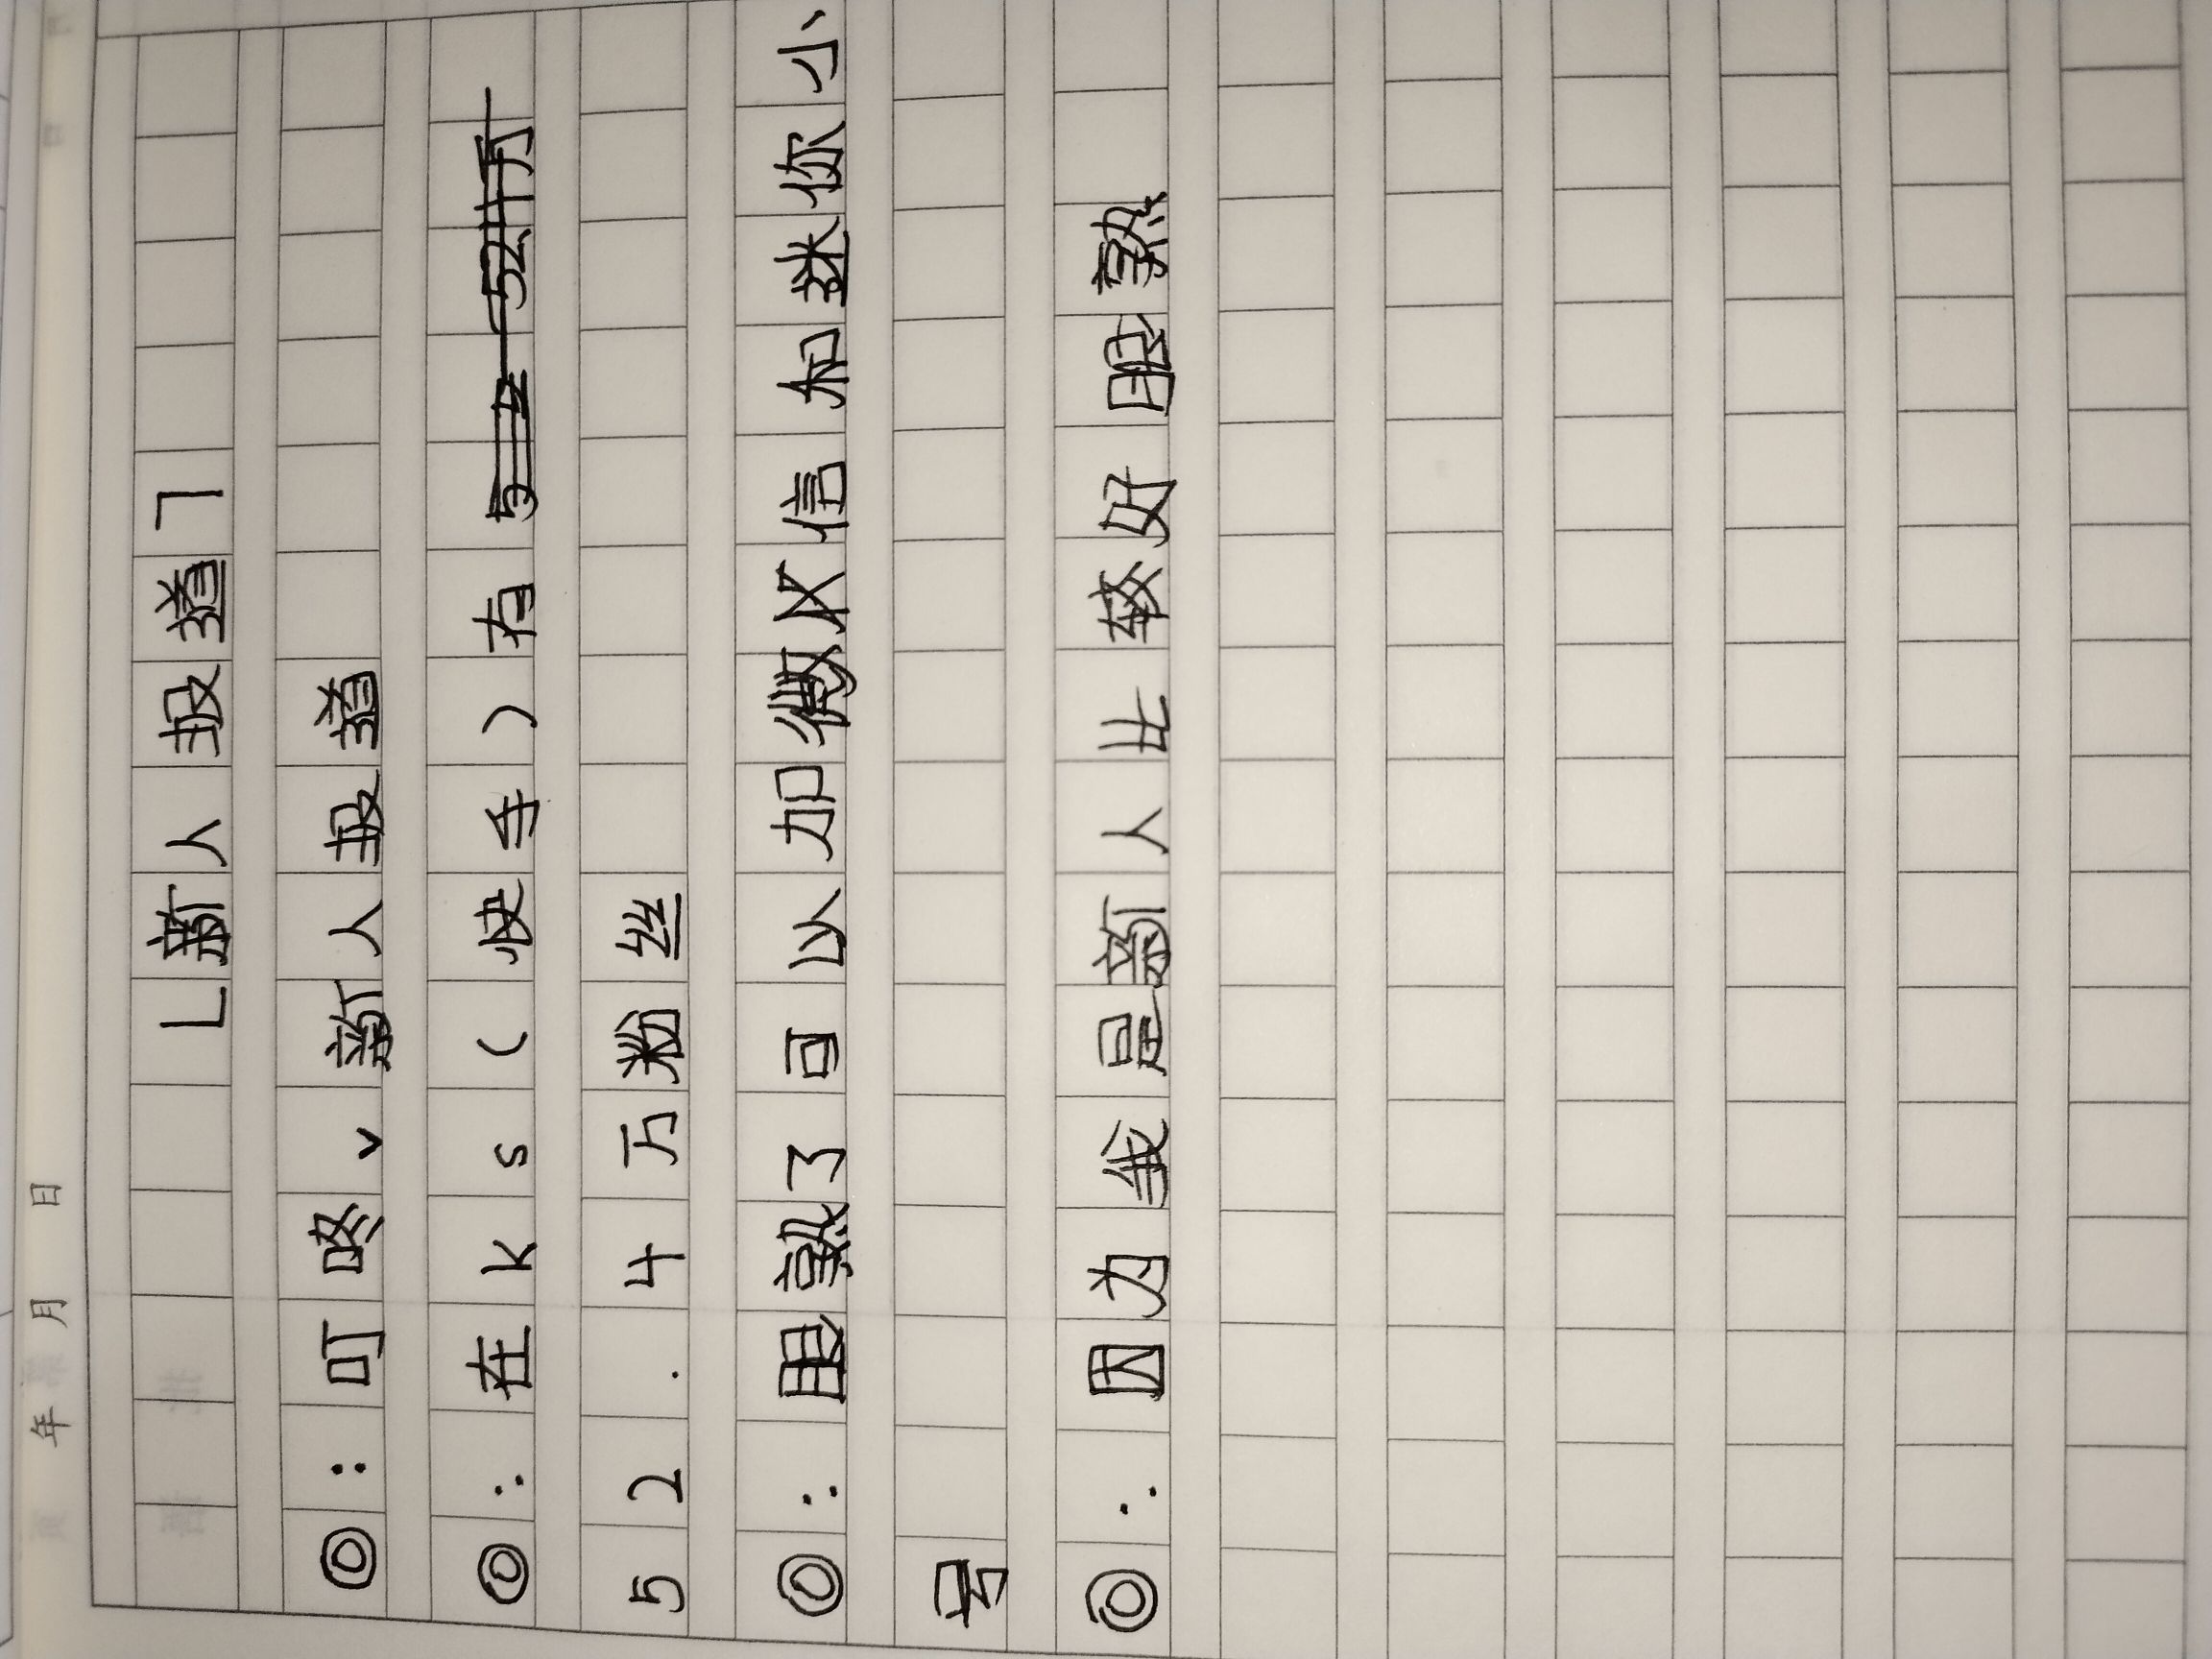 年 月 日
「新人报道」
◎:叮咚v新人报道
◎:在ks(快手)有
52.4万粉丝
◎:眼熟了可以加微信和迷你小
号
◎:因为我是新人比较好眼熟